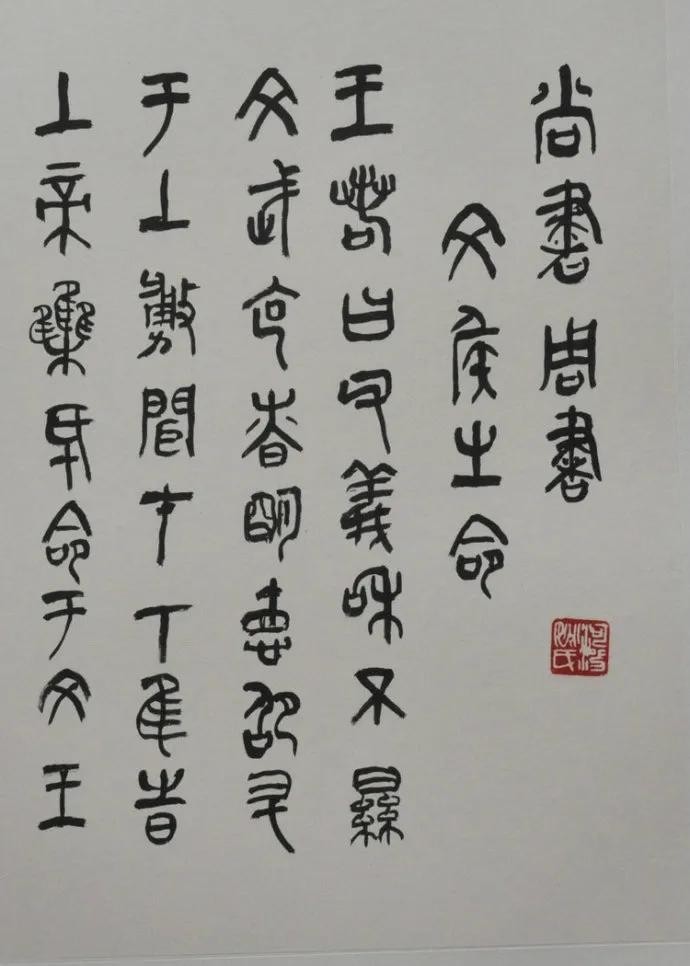 尚書周書
文侯之命
王若曰父義和不顯
文武克慎明德昭升
于上敷聞在下惟時
上帝集厥命于文王